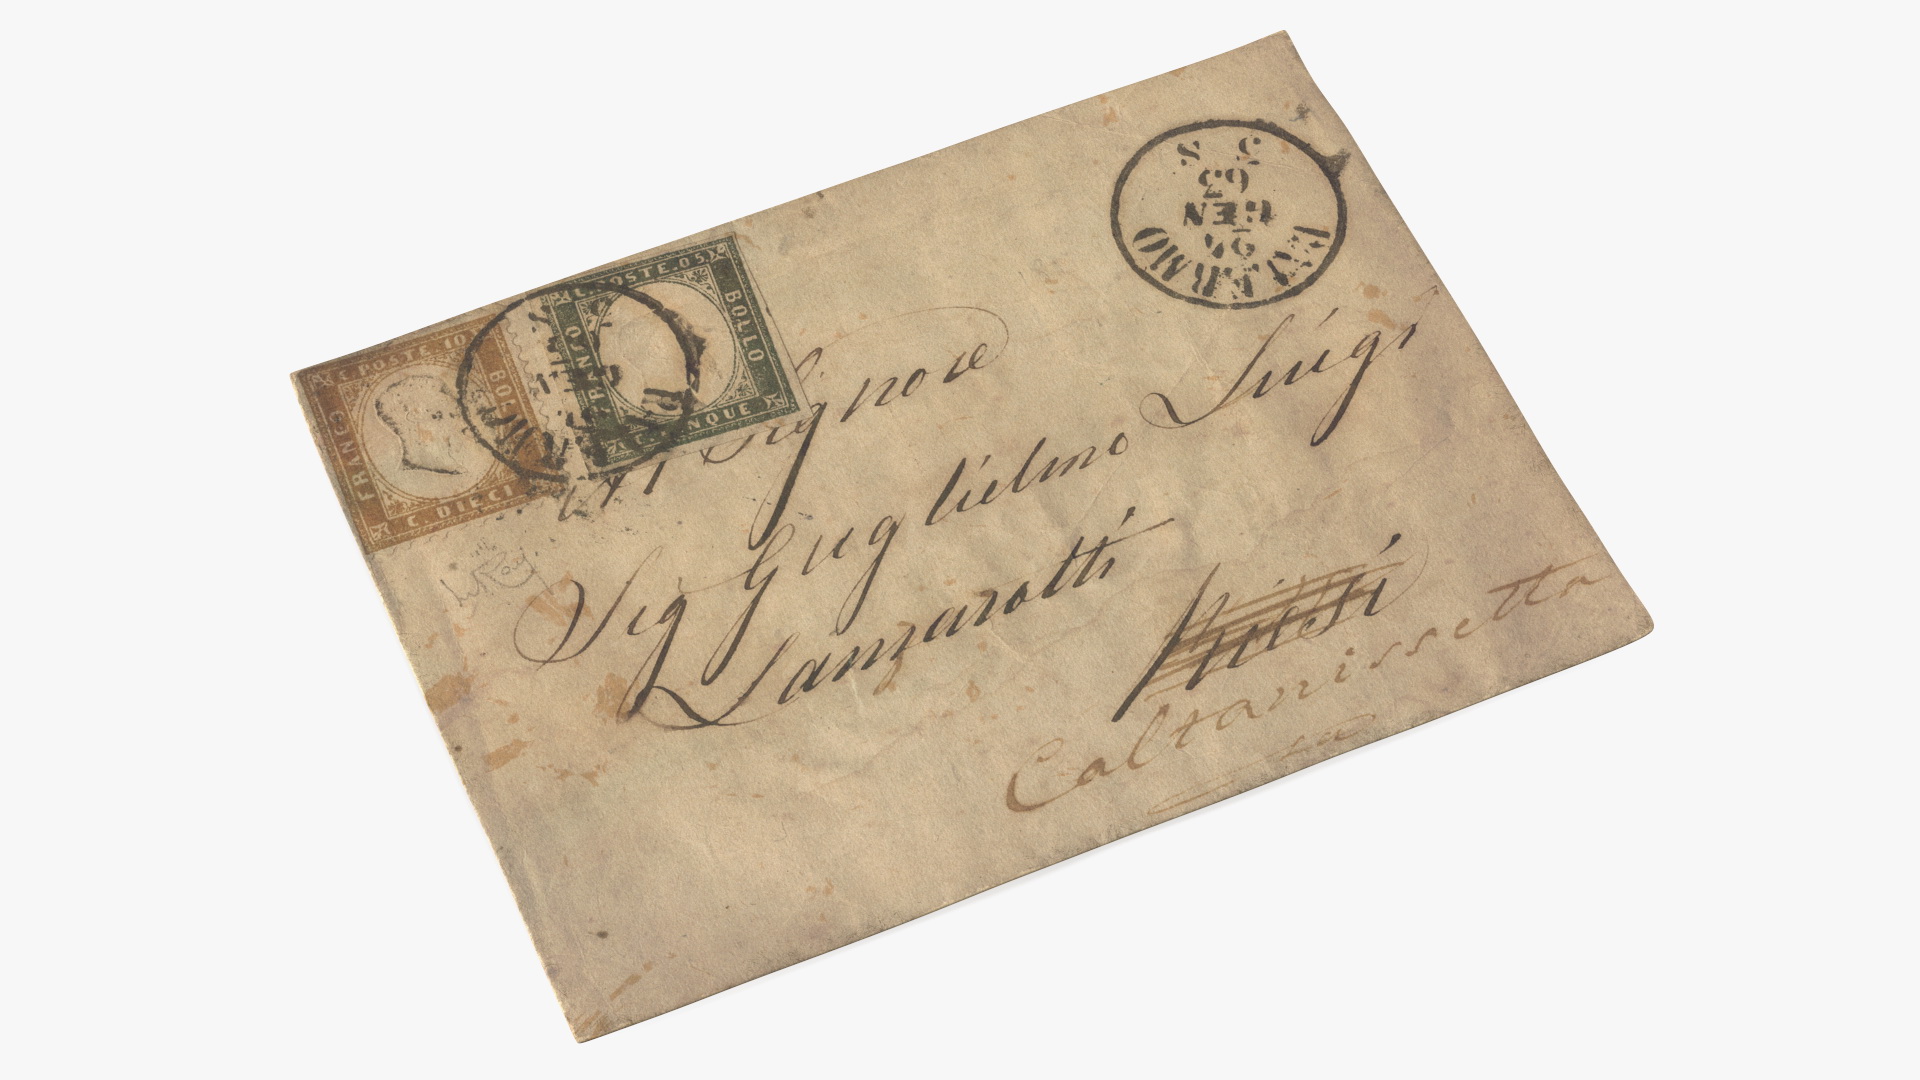 C. POSTE. 10
FRANCO
BOLLO
C. DIECI
C. POSTE. 05
FRANCO
BOLLO
C. CINQUE
PALERMO
24
GEN
63
3 S
Al Signore
Sig Guglielmo Luigi
Lanzarotti
Caltanissetta